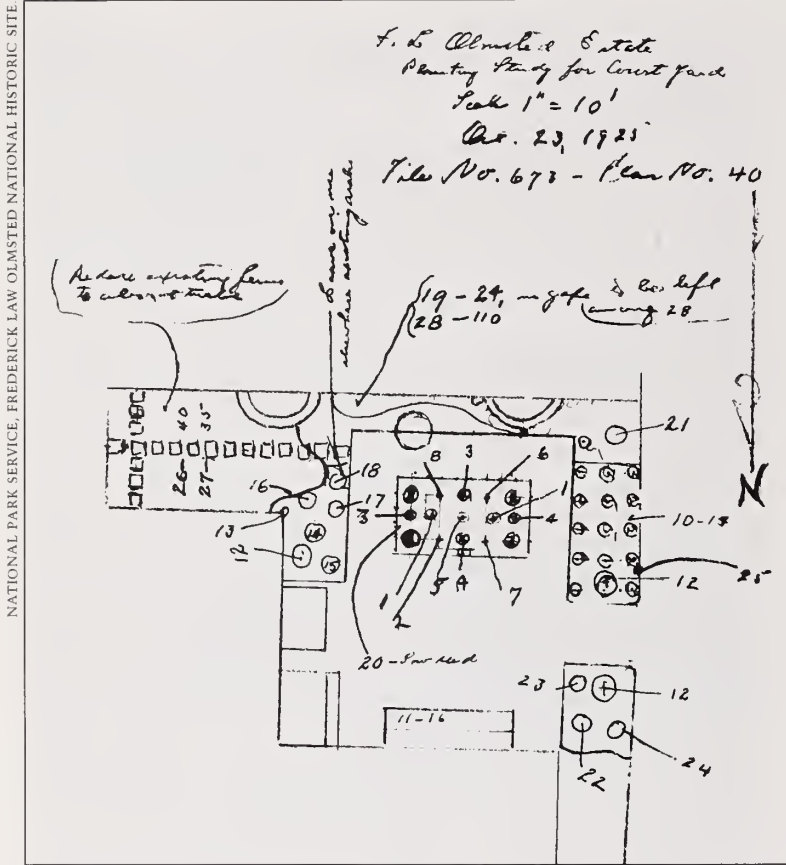 NATIONAL PARK SERVICE, FREDERICK LAW OLMSTED NATIONAL HISTORIC SITE.
F. L Olmsted Estate
Planting Study for Court Yard
Scale 1" = 10'
Oct. 23, 1925
File No. 673 - Plan No. 40
existing
to
elsewhere
19 - 24, no gaps to be left
28 - 110 among 28
26 - 40
27 - 35
21
N
18
8
3
6
16
17
3
1
4
10-14
13
14
12
15
1
2
5
4
7
12
25
20 - seed
23
12
11-16
22
24